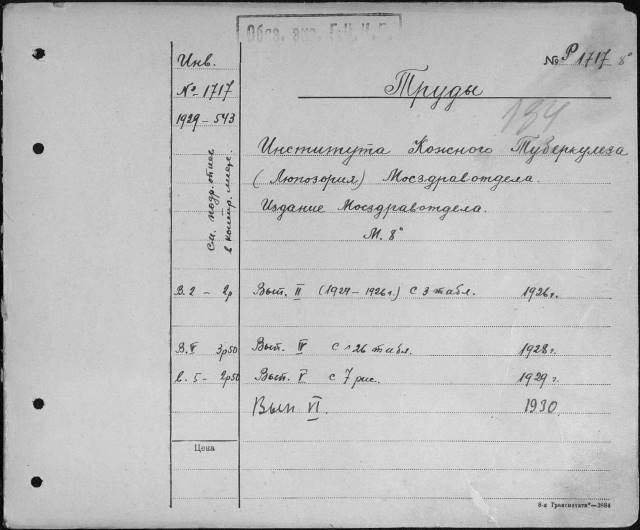 Обяз. экз. Г.Ц.К.П.
Инв.
№ 1717
1929-543
см. подр. опис.
в контр.
№ Р 1717 8°
Труды
134
Института Кожного Туберкулеза
(Люпозория) Мосздравотдела.
Издание Мосздравотдела.
М. 8°
В. 2 - 2р Вып. II (1924-1926 г.) с 3 табл. 1926 г.
3р50 Вып. IV с 26 табл. 1928 г.
в. 5 - 2р50 Вып. V с 7 рис. 1929 г.
Вып VI. 1930.
Цена
8-я „Транспечати"—3884